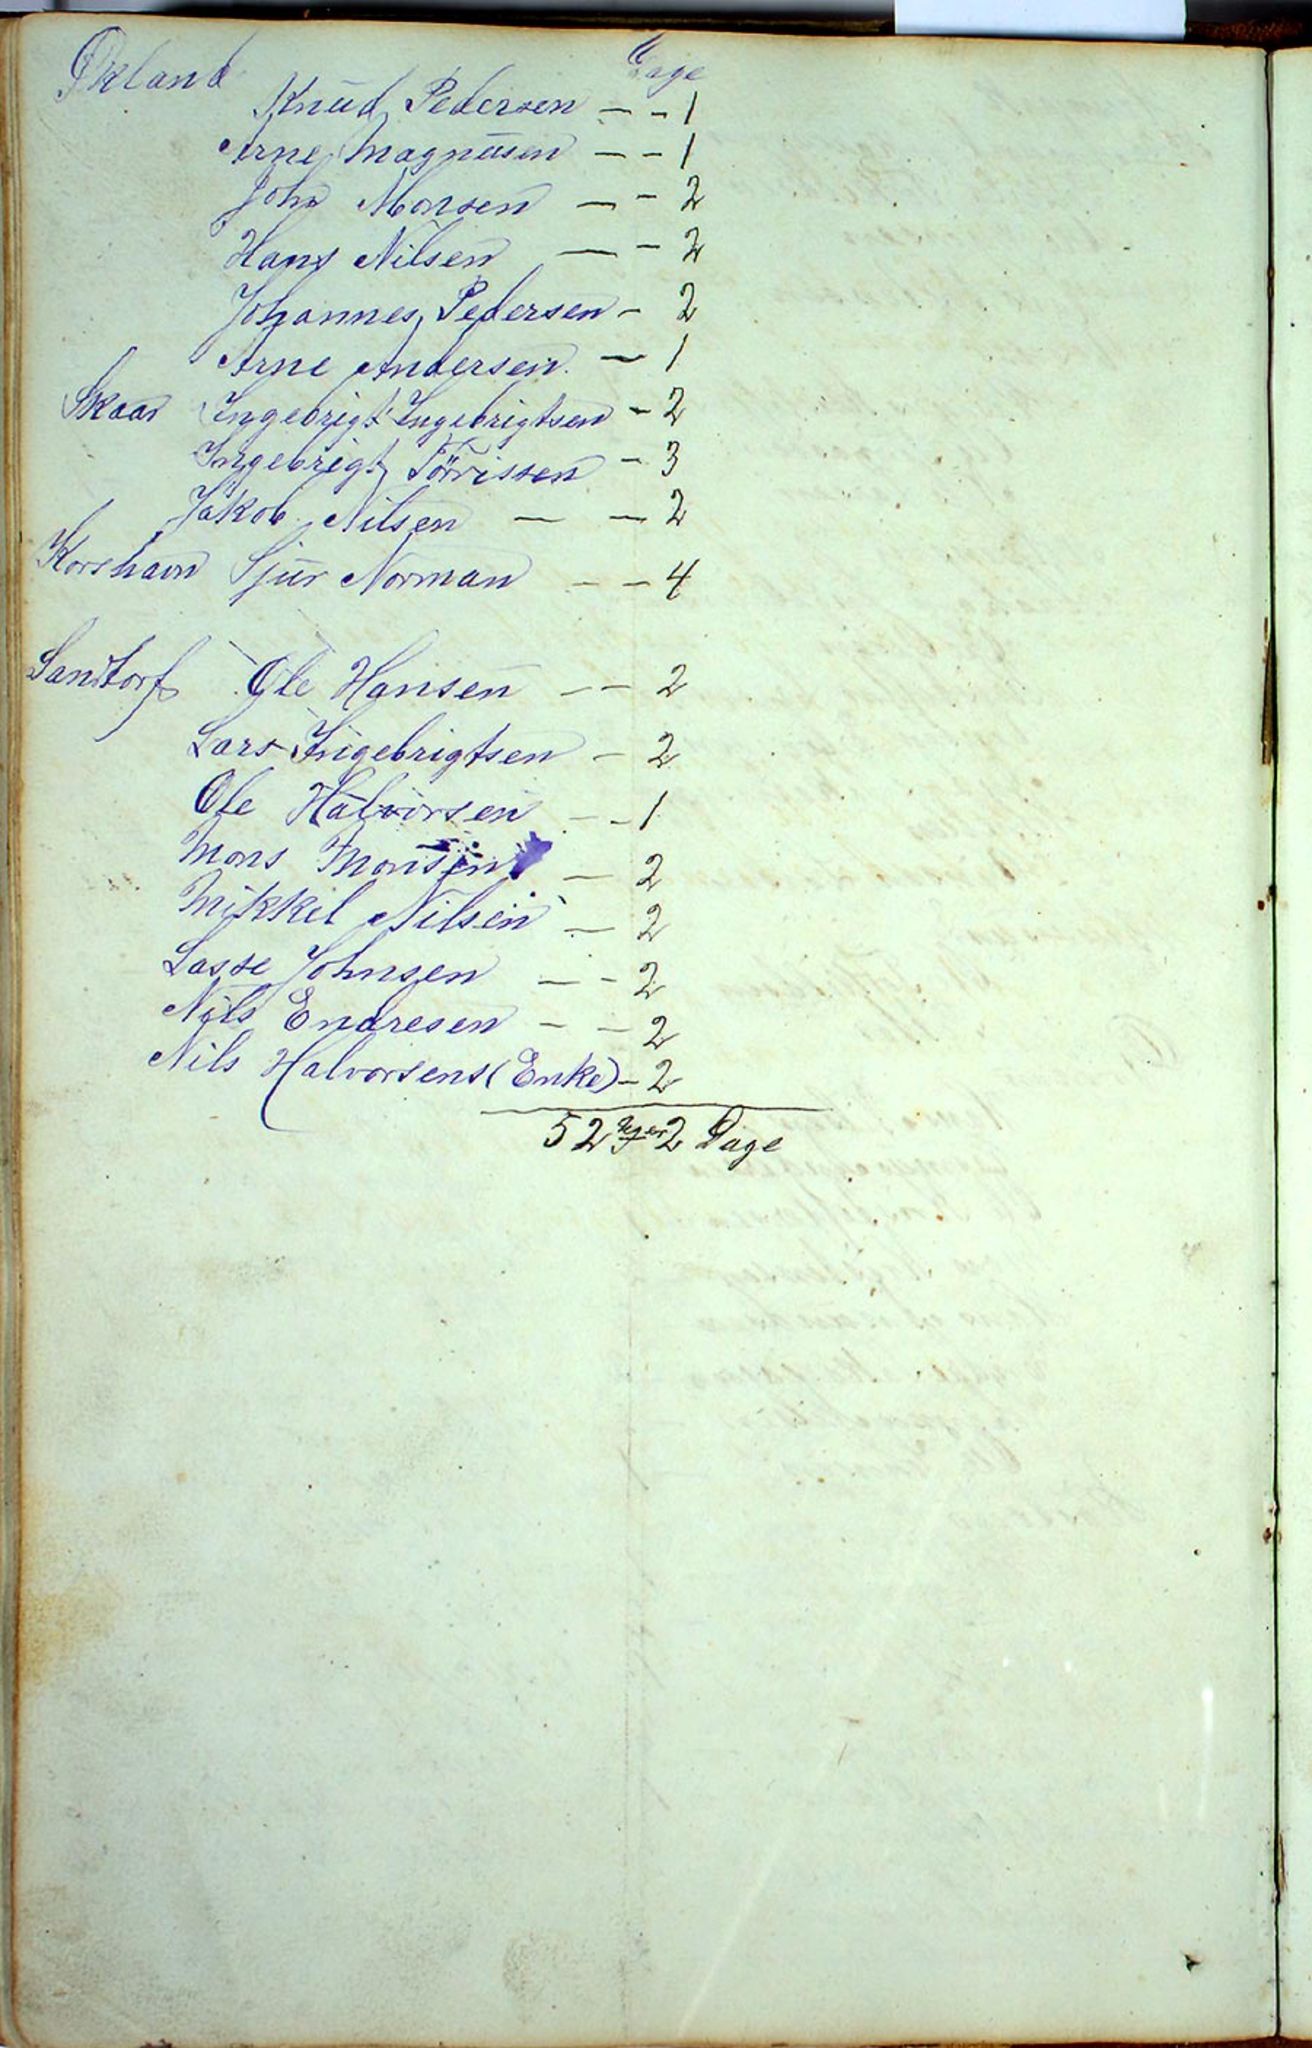 Økland Dage
Knud Pedersen — - 1
Arne Magnusen — - 1
John Monsen — - 2
Hans Nilsen — - 2
Johannes Pedersen - 2
Arne Andersen. — 1
Skaar Ingebrigt Ingebrigtsen - 2
Ingebrigt Törrissen - 3
Jakob Nilsen — — 2
Korshavn Sjur Norman — — 4
Sandtorf Ole Hansen — — 2
Lars Ingebrigtsen - 2
Ole Halvorsen - - 1
Mons Monsen — 2
Mikkel Nilsen — 2
Lasse Johnsen — - 2
Nils Endresen - - 2
Nils Halvorsens (Enke) - 2
52 Uger 2 Dage